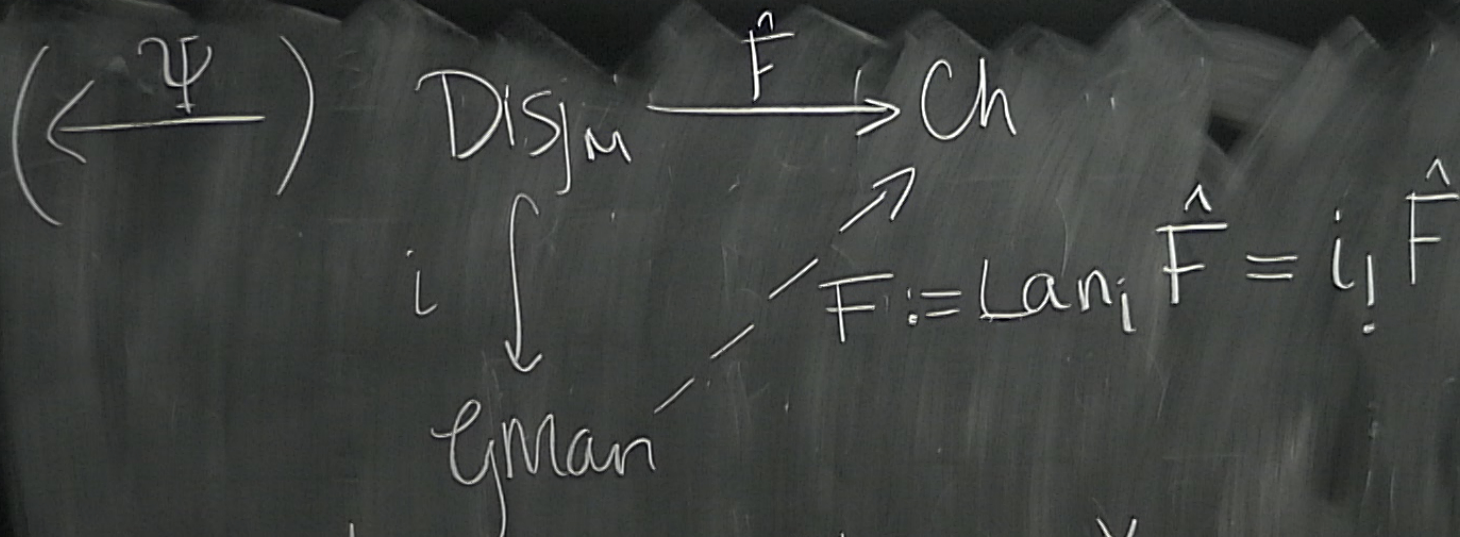 (← Ψ) Disj_M → F̂ Ch
i F := Lan_i F̂ = i_! F̂
GMan